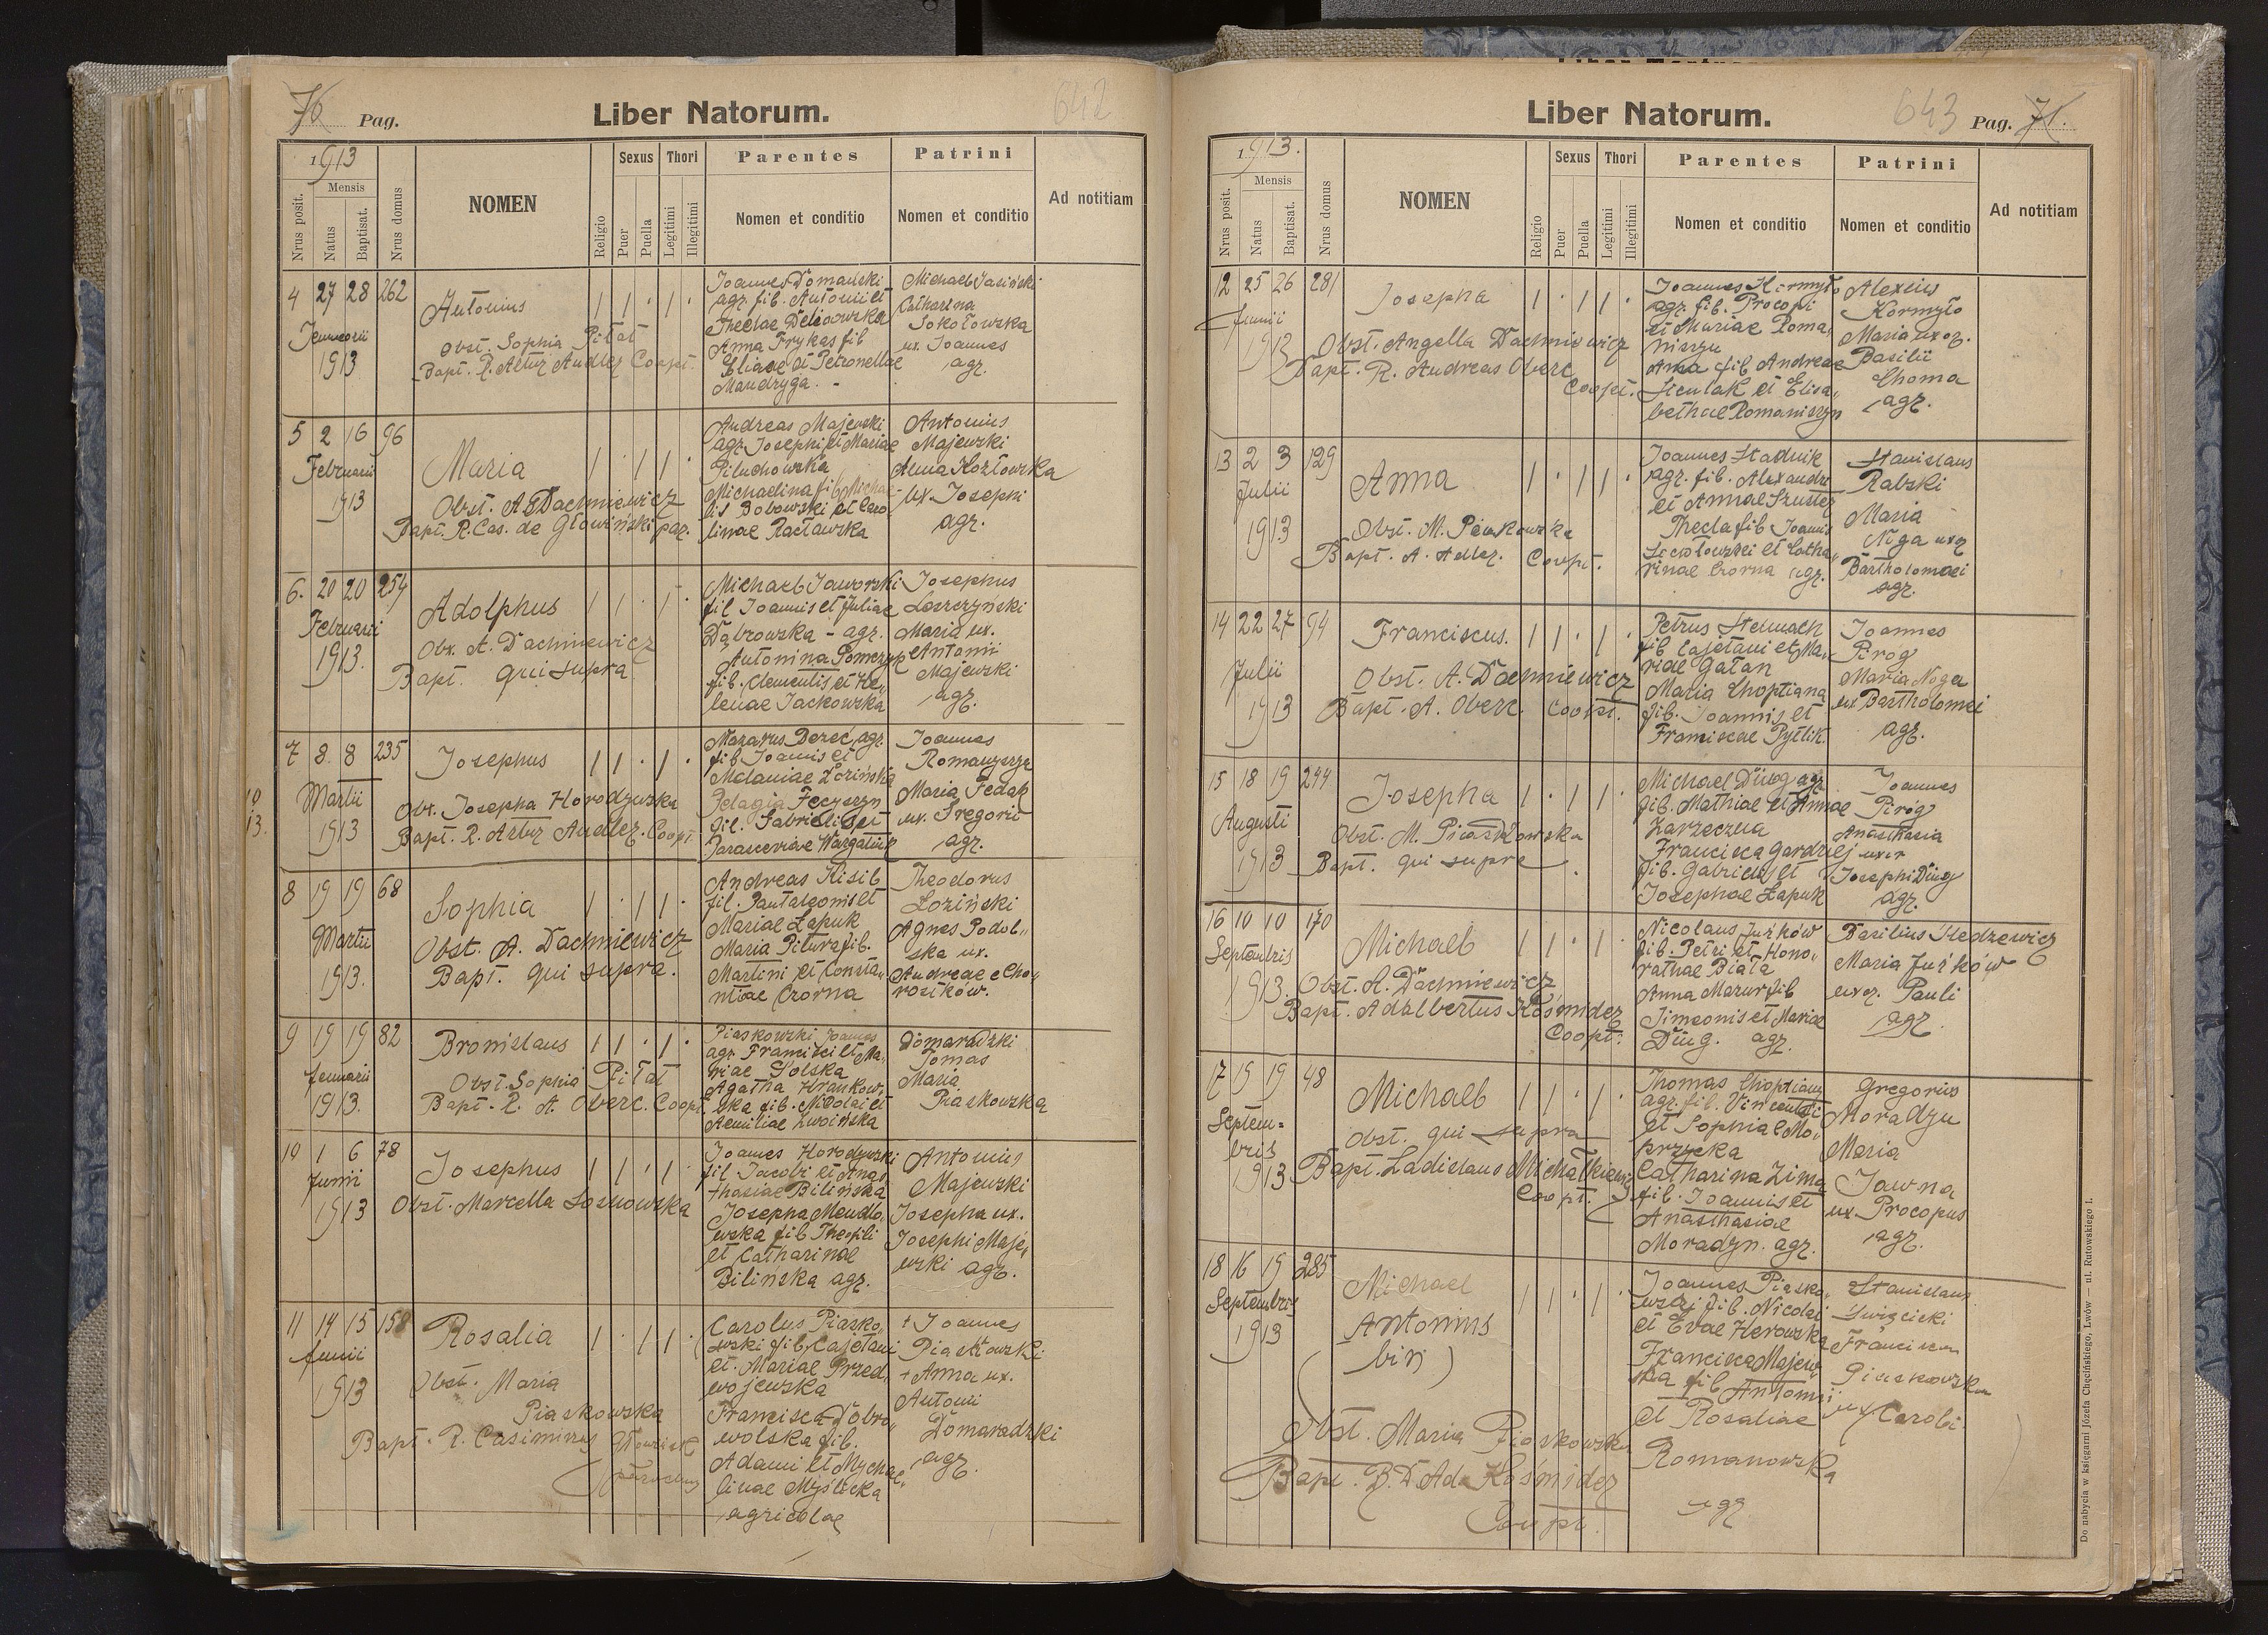 76 Pag. Liber Natorum. 642
1913 Sexus Thori Parentes Patrini
Nrus posit. Mensis Natus Baptisat. Nrus domus NOMEN Religio Puer Puella Legitimi Illegitimi Nomen et conditio Nomen et conditio Ad notitiam
4 27 28 262 Antonius 1 1 · 1 ·
Januarii
1913
Obst. Sophia Piłat
Bapt. R. Artur Coopt.
Joannes Domański
agr. fil. Antonii et
Theclae
Anna Prykas fil
Eliae et Petronellae
Mandryga. -
Michael Jasiński
Catharina
Sokołowska
ux. Joannes
agr.
5 2 16 96 Maria 1 · 1 1 ·
Februarii
1913
Obst. A. Dachniewicz
Bapt. R. Cas. de Głowiński par.
Andreas Majewski
agr. Josephi et Mariae
Piluchowska
Michaelina fil Micha-
lis Bobowski et Caro-
linae Racławska
Antonius
Majewski
Anna Kozłowska
ux. Josephi
agr.
6. 20 20 254 Adolphus 1 1 · 1 ·
Februarii
1913.
Obst. A. Dachniewicz
Bapt. qui supra
Michael Jaworski
fil Joannis et Juliae
Dąbrowska - agr.
Antonina
fil. Clementis et He-
lenae Jackowska
Josephus
Leszczyński
Maria ux.
Antonii
Majewski
agr.
7 8. 8 235 Josephus 1 1 · 1 ·
10
13.
Martii
1913
Obst. Josepha Horodyuska
Bapt. R. Artur Coopt.
agr.
fil Joannis et
Melaniae Łozińska
Pelagia Fecyszyn
fil. Gabrielis et
Parasceviae
Joannes
Maria Fedak
ux. Gregorii
agr.
8 19 19 68 Sophia 1 · 1 1 ·
Martii
1913.
Obst. A. Dachniewicz
Bapt. qui supra.
Andreas Kisil
fil. Pantaleonis et
Mariae Łapuk
Maria Pitura fil.
Martini et Consta-
ntiae Czorna
Theodorus
Łoziński
Agnes Podol-
ska ux.
Andreae e Cho-
rostków.
9 19 19 82 Bronislaus 1 1 · 1 ·
Januarii
1913.
Obst. Sophia Piłat
Bapt. R. A. Oberc. Coopt.
Piaskowski Joannes
agr. Francisci et Ma-
riae Solska
Agatha Hrankow-
ska fil. Nicolai et
Aemiliae
Domaradzki
Tomas
Maria
Piaskowska
10 1 6 78 Josephus 1 1 · 1 ·
Junii
1913
Obst. Marcella Sosnowska
Joannes Horodyuski
fil Jacobi et Anas-
thasiae Bilińska
Josepha
wska fil Theofili
et Catharinae
Bilińska agr.
Antonius
Majewski
Josepha ux.
Josephi Maje-
wski agr.
11 14 15 158 Rosalia 1 · 1 1 ·
Junii
1913
Obst. Maria
Piaskowska
Bapt. R. Casimirus Głowiński
parochus
Carolus Piasko-
wski fil. Cajetani
et. Mariae Przed-
wojewska
Francisca Dobro-
wolska fil.
Adami et Mychae-
linae Myślicka
agricolae
+ Joannes
Piaskowski
+ Anna ux.
Antonii
Domaradzki
agr.
Liber Natorum. 643 Pag. 71.
1913. Sexus Thori Parentes Patrini
Nrus posit. Mensis Natus Baptisat. Nrus domus NOMEN Religio Puer Puella Legitimi Illegitimi Nomen et conditio Nomen et conditio Ad notitiam
12 25 26 281 Josepha 1 · 1 1 ·
Junii
1913
Obst. Angella Dachniewicz
Bapt. R. Andreas Oberc
Coopt.
Joannes Kormyło
agr. fil. Procopi
et Mariae Roma-
niszyn
Anna fil Andreae
Steculak et Elisa-
bethae Romaniszyn
Alexius
Kormyło
Maria uxor.
Basilii
Choma
agr.
13 2 3 129 Anna 1 · 1 1 ·
Julii
1913
Obst. M. Piaskowska
Bapt. A. Coopt.
Joannes Stadnik
agr. fil. Alexandri
et Annae Szuster
Thecla fil Joannis
et Catha-
rinae Czorna agr.
Stanislaus
Rabski
Maria
Noga uxor
Bartholomaei
agr.
14 22 27 94 Franciscus. 1 1 · 1 ·
Julii
1913
Obst. A. Dachniewicz
Bapt. A. Oberc. Coopt.
Petrus Stelmach
fil Cajetani et Ma-
riae Gałan
Maria Choptiana
fil. Joannis et
Franciscae Pytlik.
Joannes
Pirog
Maria Noga
ux Bartholomei
agr.
15 18 19 244 Josepha 1 · 1 1 ·
Augusti
1913
Obst. M. Piaskowska
Bapt. qui supra
Michael Ding agr.
fil. Mathiae et Annae
Zarzeczna
Francisca Gardziej
fil. Gabrielis et
Josephae Łapuk
Joannes
Pirog
Anasthasia
uxor
Josephi Ding
agr.
16 10 10 170 Michael 1 1 · 1 ·
Septembris
1913.
Obst. A. Dachniewicz
Bapt. Adalbertus Kośmider
Coopt.
Nicolaus Juśków
fil. Petri et Hono-
rathae Biała
Anna Mazur fil
Simeonis et Mariae
Ding. agr.
Basilius Hedzewicz
Maria Juśków
uxor. Pauli
agr.
17 15 19 48 Michael 1 1 · 1 ·
Septem-
bris
1913
Obst. qui supra
Bapt. Ladislaus Michałkiewicz
Coopt.
Thomas Choptiany
agr. fil. Vincentii
et Sophiae Mo-
przycka
Catharina Zima
fil. Joannis et
Anasthasiae
Moradyn. agr.
Gregorius
Moradyn
Maria
Jawna
ux Procopus
agr.
18 16 19 285 Michael 1 1 · 1 ·
Septembris
1913
Antonius
(bin)
Obst. Maria Piaskowska
Bapt. Ada Kośmider
Coopt.
Joannes Piasko-
wski fil. Nicolai
et Evae Herowska
Francisca Majew-
ska fil Antonii
et Rosaliae
Romanowska
agr
Stanislaus
Święcicki
Francisca
Piaskowska
ux Caroli.
Do nabycia w księgarni Józefa Chęcińskiego, Lwów — ul. Rutowskiego 1.